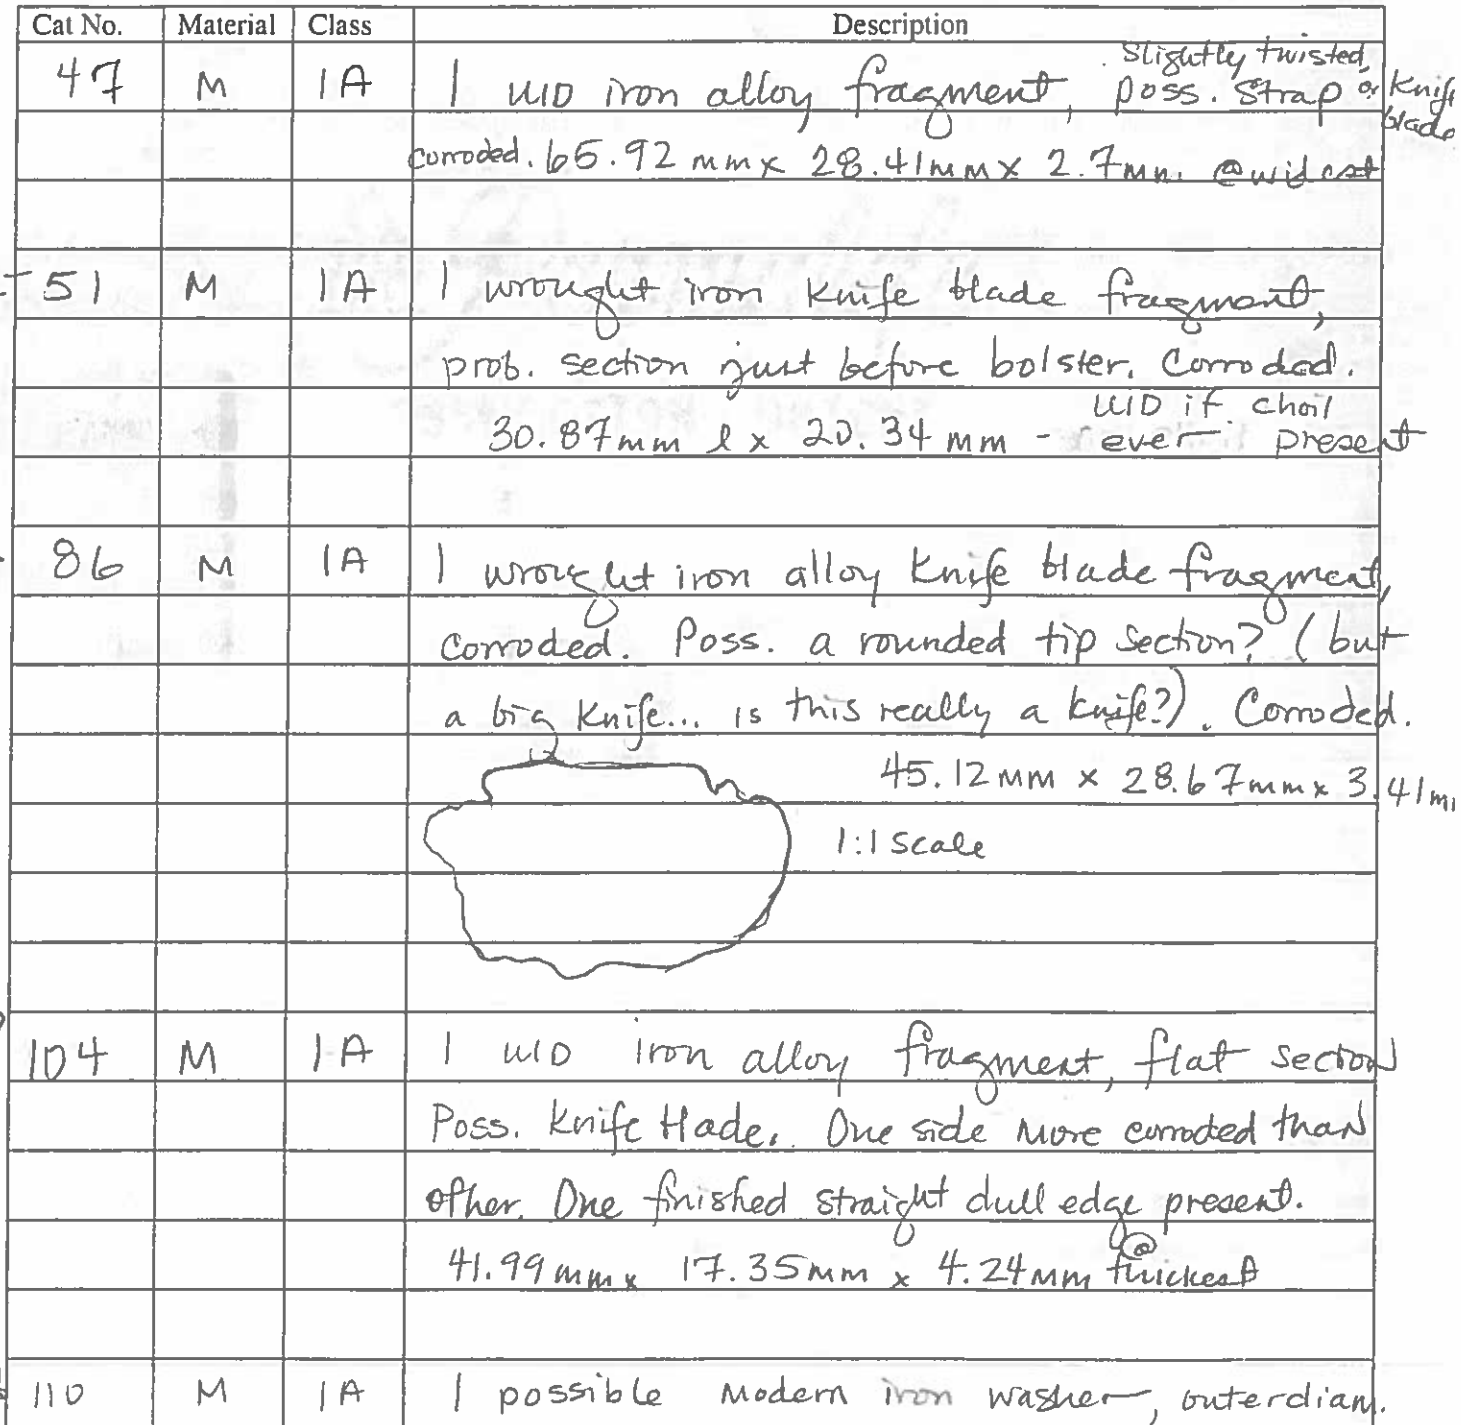 Cat No. Material Class Description
47 M 1A 1 UID iron alloy fragment, Slightly twisted, poss. strap or Knife blade
corroded. 65.92 mm x 28.41mm x 2.7mm. @ widest
51 M 1A 1 wrought iron Knife blade fragment,
prob. section just before bolster. Corroded.
30.87mm l x 20.34 mm - UID if choil ever present
86 M 1A 1 wrought iron alloy Knife blade fragment,
corroded. Poss. a rounded tip section? (but
a big Knife... is this really a knife?). Corroded.
45.12 mm x 28.67mm x 3.41m
1:1 Scale
104 M 1A 1 UID iron alloy fragment, flat section
Poss. Knife blade. One side more corroded than
other. One finished straight dull edge present.
41.99 mm x 17.35mm x 4.24mm @ thickest
110 M 1A 1 possible Modern iron washer, outer diam.